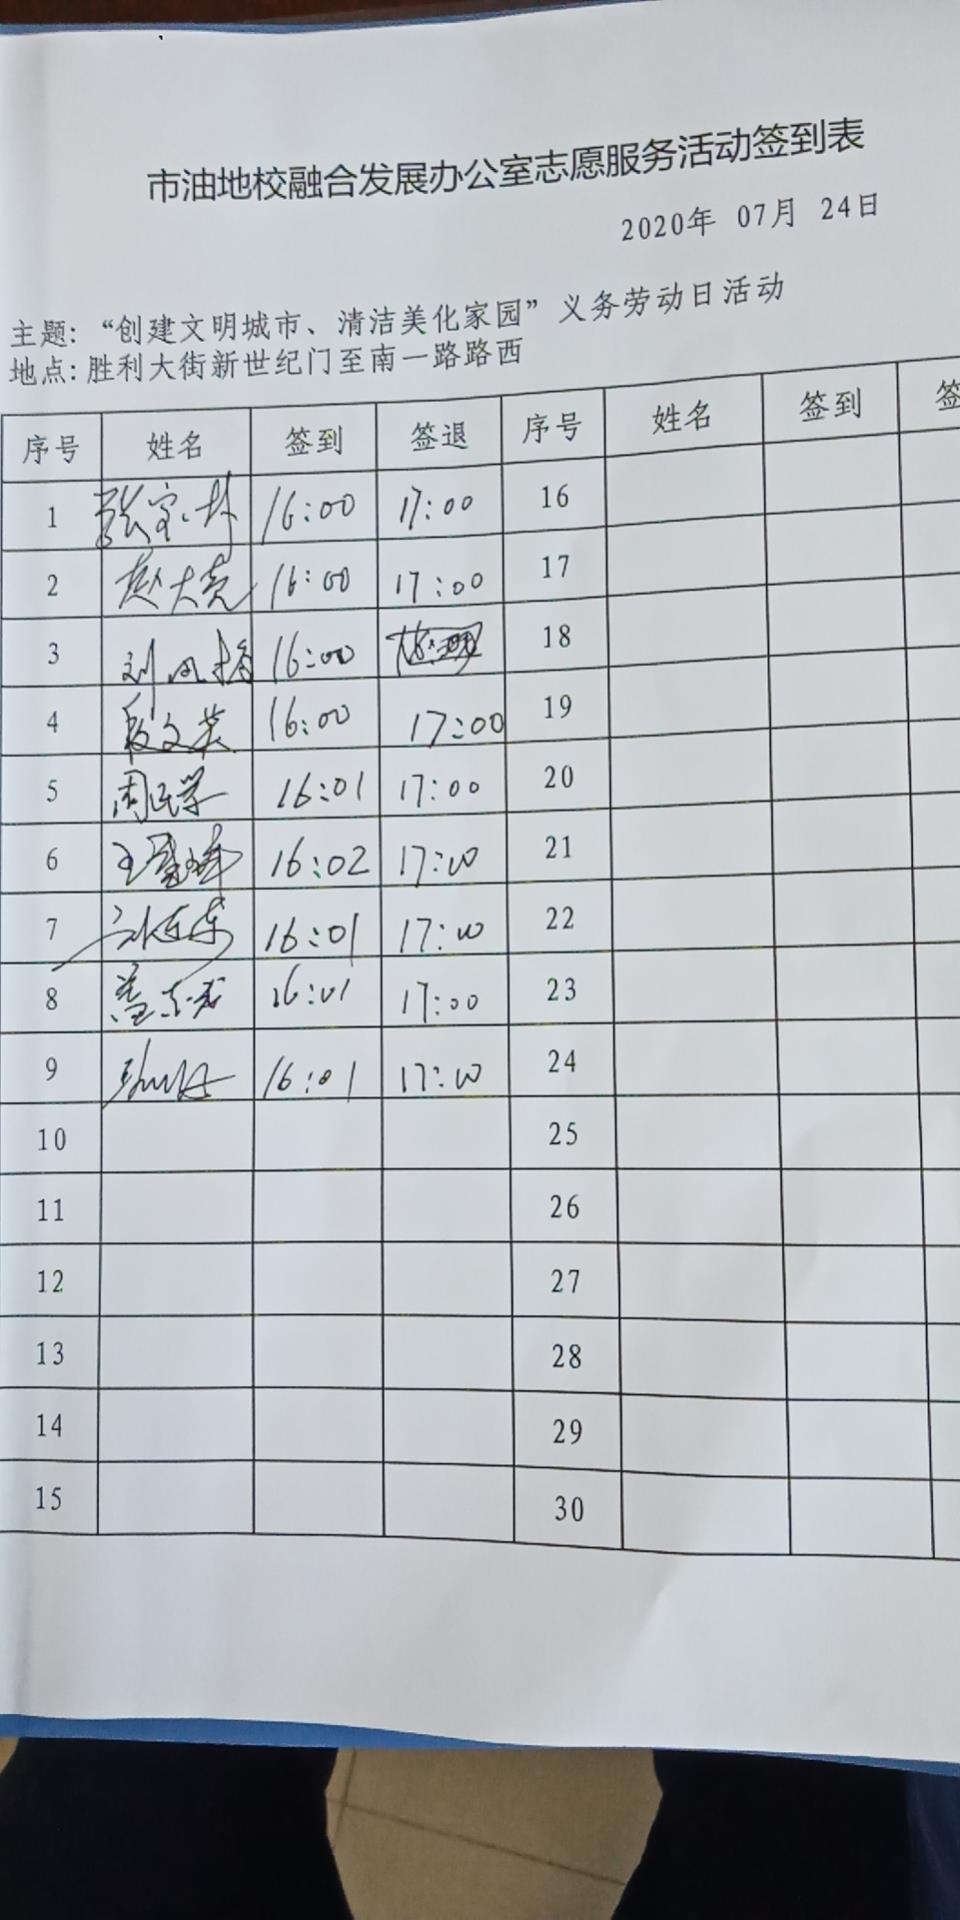 市油地校融合发展办公室志愿服务活动签到表
2020年 07月 24日
主题: “创建文明城市、清洁美化家园”义务劳动日活动
地点: 胜利大街新世纪门至南一路路西
序号 姓名 签到 签退 序号 姓名 签到 签
1 16:00 17:00 16
2 赵大亮 16:00 17:00 17
3 16:00 18
4 段文英 16:00 17:00 19
5 周民学 16:01 17:00 20
6 16:02 17:00 21
7 16:01 17:00 22
8 16:01 17:00 23
9 16:01 17:00 24
10 25
11 26
12 27
13 28
14 29
15 30